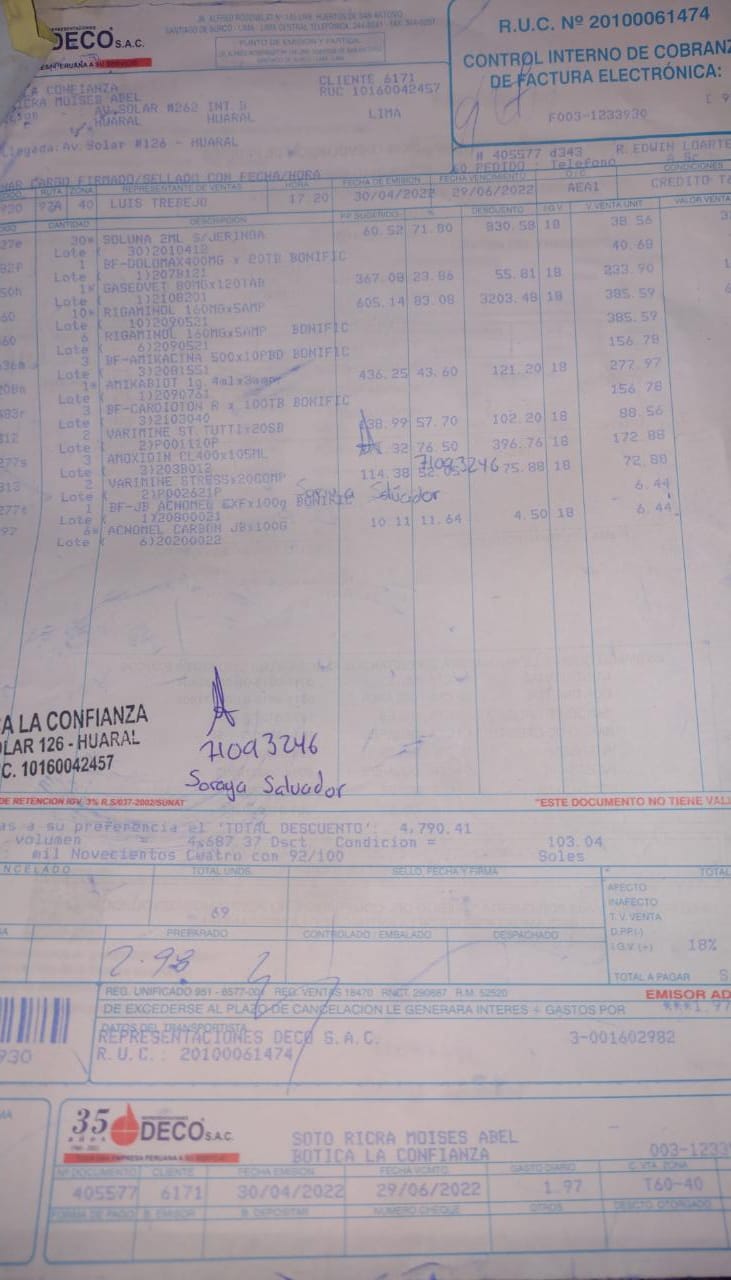 DECO S.A.C.
JR. ALFREDO ROSENBLAT Nº 145 URB. HUERTOS DE SAN ANTONIO
SANTIAGO DE SURCO - LIMA - LIMA CENTRAL TELEFÓNICA:
PUNTO DE EMISIÓN Y PARTIDA
R.U.C. Nº 20100061474
CONTROL INTERNO DE COBRANZ
DE FACTURA ELECTRÓNICA:
F003-1233930
CA CONFIANZA
RICRA MOISES ABEL
AV. SOLAR #262 INT B
HUARAL HUARAL LIMA
CLIENTE 6171
RUC 10160042457
Llegada: Av. Solar #126 - HUARAL
# 405577 d343 R. EDWIN LOARTE
PEDIDO: Telefono
CARGO FIRMADO/SELLADO CON FECHA/HORA
RUTA ZONA REPRESENTANTE DE VENTAS HORA FECHA DE EMISION FECHA VENCIMIENTO CONDICIONES
92A 40 LUIS TREBEJO 17 20 30/04/2022 29/06/2022 AEA1 CREDITO
CANTIDAD DESCRIPCIÓN P.P. SUGERIDO % DESCUENTO I.G.V. V. VENTA UNIT VALOR VENTA
30* SOLUNA 2ML S/JERINGA 60.52 71.80 830.58 18 38.56
Lote ( 30)2010412
1 BF-DOLOMAX400MG x 20TB BONIFIC 40.68
Lote ( 1)2078121
1* GASEOVET 80MGx120TAB 367.08 23.86 55.81 18 233.90
Lote ( 1)2108201
10* RIGAMINOL 160MGx5AMP 605.14 83.08 3203.48 18 385.59
Lote ( 10)2090521
6 RIGAMINOL 160MGx5AMP BONIFIC 385.59
Lote ( 6)2090521
3 BF-AMIKACINA 500x10PBD BONIFIC 156.78
Lote ( 3)2081551
1* AMIKABIOT 1g. 4mlx3amp 436.25 43.60 121.20 18 277.97
Lote ( 1)2090761
3 BF-CARDIOTON R x 100TB BONIFIC 156.78
Lote ( 3)2103040
2 VARIMINE ST.TUTTIx20SB 38.99 57.70 102.20 18 88.56
Lote ( 2)P001110P
3 AMOXIDIN CL400x105ML 76.50 396.76 18 172.88
Lote ( 3)2038012
2 VARIMINE STRESSx20COMP 114.38 75.88 18 72.88
Lote ( 2)P002621P
1 BF-JB ACNOMEL EXFx100g BONIFIC 6.44
Lote ( 1)20800021
6* ACNOMEL CARBON JBx100G 10.11 11.64 4.50 18 6.44
Lote ( 6)20200022
71093246
Soraya Salvador
A LA CONFIANZA
OLAR 126 - HUARAL
C. 10160042457
71093246
Soraya Salvador
DE RETENCION IGV. 3% R.S/037-2002/SUNAT
"ESTE DOCUMENTO NO TIENE VAL
as a su preferencia el 'TOTAL DESCUENTO': 4,790.41
volumen = 4,687.37 Dsct. Condicion = 103.04
mil Novecientos Cuatro con 92/100 Soles
NCELADO TOTAL UNDS. SELLO, FECHA Y FIRMA TOTAL
69
AFECTO
INAFECTO
T. V. VENTA
D.PP.(-)
I.G.V. (+) 18%
TOTAL A PAGAR S
PREPARADO CONTROLADO / EMBALADO DESPACHADO
REG. UNIFICADO 951 - 6577-00 REG. VENTAS 18470
EMISOR AD
DE EXCEDERSE AL PLAZO DE CANCELACION LE GENERARA INTERES + GASTOS POR ***1.97
DATOS DEL TRANSPORTISTA
REPRESENTACIONES DECO S.A.C. 3-001602982
R.U.C.: 20100061474
930
35 años
REPRESENTACIONES
DECO S.A.C.
SOTO RICRA MOISES ABEL
BOTICA LA CONFIANZA
003-1233
Nº DOCUMENTO CLIENTE FECHA EMISION FECHA VCMTO. GASTO DIARIO C. VTA. ZONA
405577 6171 30/04/2022 29/06/2022 1.97 T60-40
FORMA DE PAGO B. EMISOR B. DEPOSITAR NUMERO CHEQUE OTROS DESCTO. OTORGADO